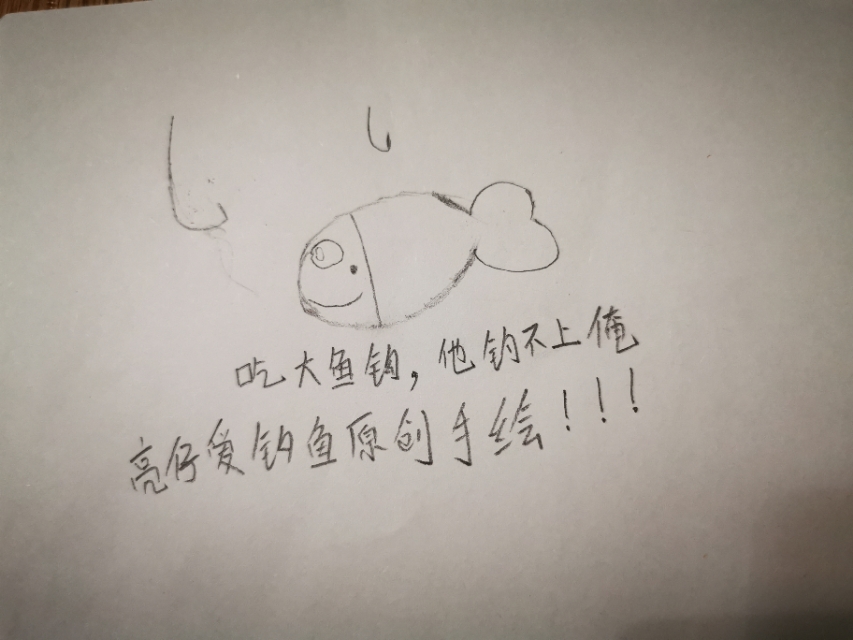 吃大鱼钩，他钓不上俺
亮仔爱钓鱼原创手绘！！！